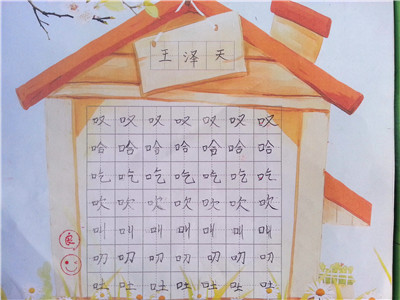 王泽天
叹叹叹叹叹叹叹
哈哈哈哈哈哈哈
吃吃吃吃吃吃吃
吹吹吹吹吹吹吹
叫叫叫叫叫叫叫
叨叨叨叨叨叨叨
吐吐吐吐吐吐吐